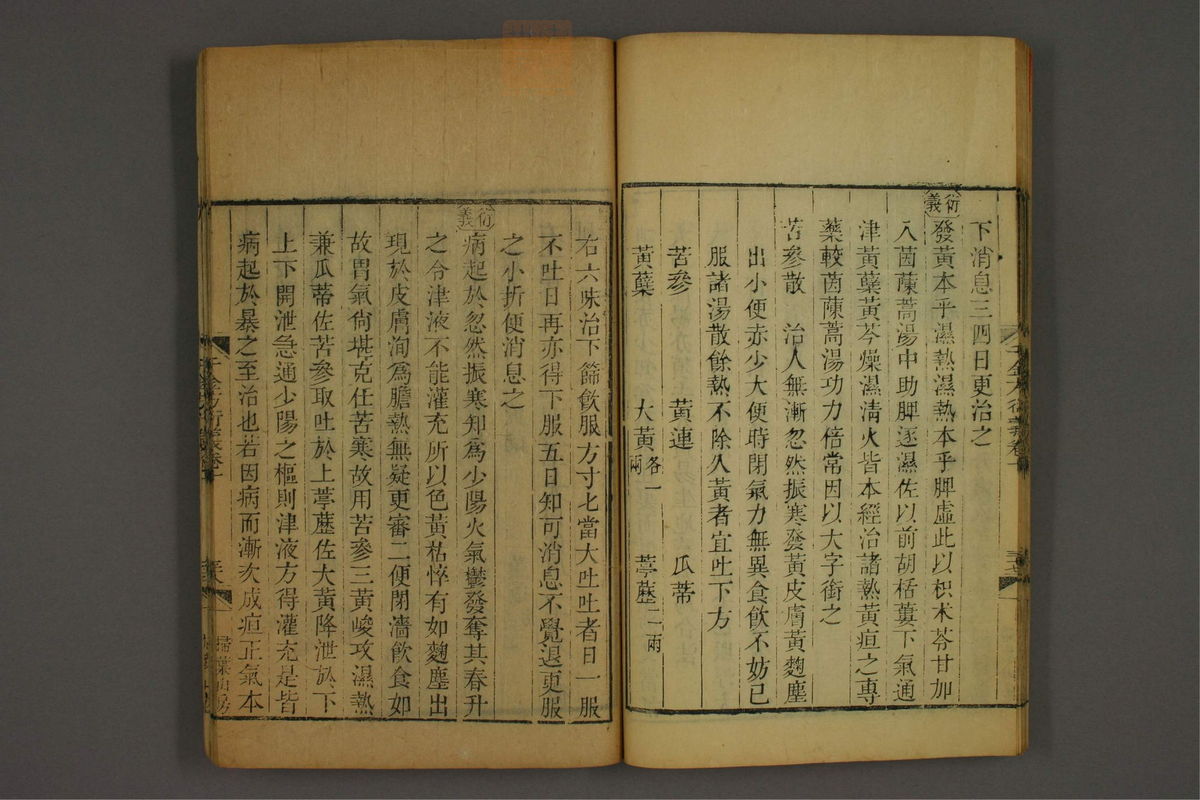 下消息三四日更治之
衍義
發黃本乎濕熱濕熱本乎脾虛此以枳术苓甘加
入茵蔯蒿湯中助脾逐濕佐以前胡栝蔞下氣通
津黃蘗黃芩燥濕清火皆本經治諸熱黃疸之專
藥較茵蔯蒿湯功力倍常因以大字銜之
苦參散　治人無漸忽然振寒發黃皮膚黃麴塵
出小便赤少大便時閉氣力無異食飲不妨已
服諸湯散餘熱不除久黃者宜吐下方
苦參　黃連　瓜蒂
黃蘗　大黃各一兩　葶藶二兩
右六味治下篩飲服方寸匕當大吐吐者日一服
不吐日再亦得下服五日知可消息不覺退更服
之小折便消息之
衍義
病起於忽然振寒知爲少陽火氣鬱發奪其春升
之令津液不能灌充所以色黃枯悴有如麴塵出
現於皮膚洵爲膽熱無疑更審二便閉濇飲食如
故胃氣尙堪克任苦寒故用苦參三黃峻攻濕熱
兼瓜蒂佐苦參取吐於上葶藶佐大黃降泄於下
上下開泄急通少陽之樞則津液方得灌充是皆
病起於暴之至治也若因病而漸次成疸正氣本
千金方衍義卷十
掃葉山房